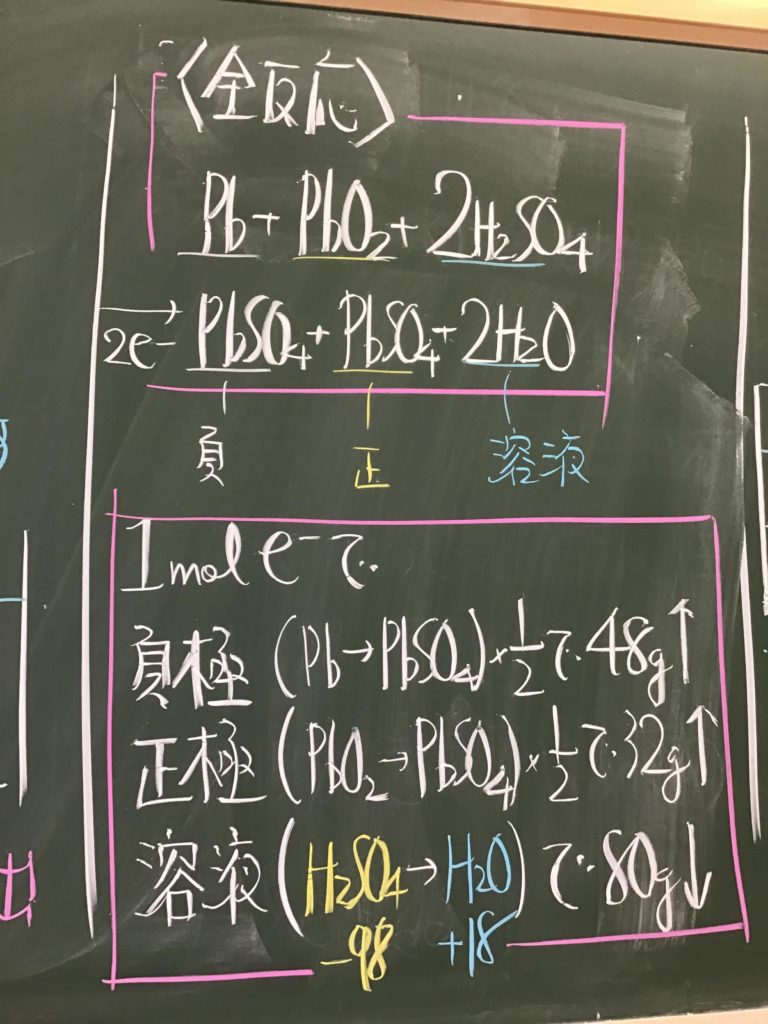 〈全反応〉
Pb + PbO₂ + 2H₂SO₄
2e⁻→ PbSO₄ + PbSO₄ + 2H₂O
負 正 溶液
1mol e⁻で
負極 (Pb→PbSO₄)×1/2で 48g↑
正極 (PbO₂→PbSO₄)×1/2で 32g↑
溶液 (H₂SO₄→H₂O)で 80g↓
-98 +18